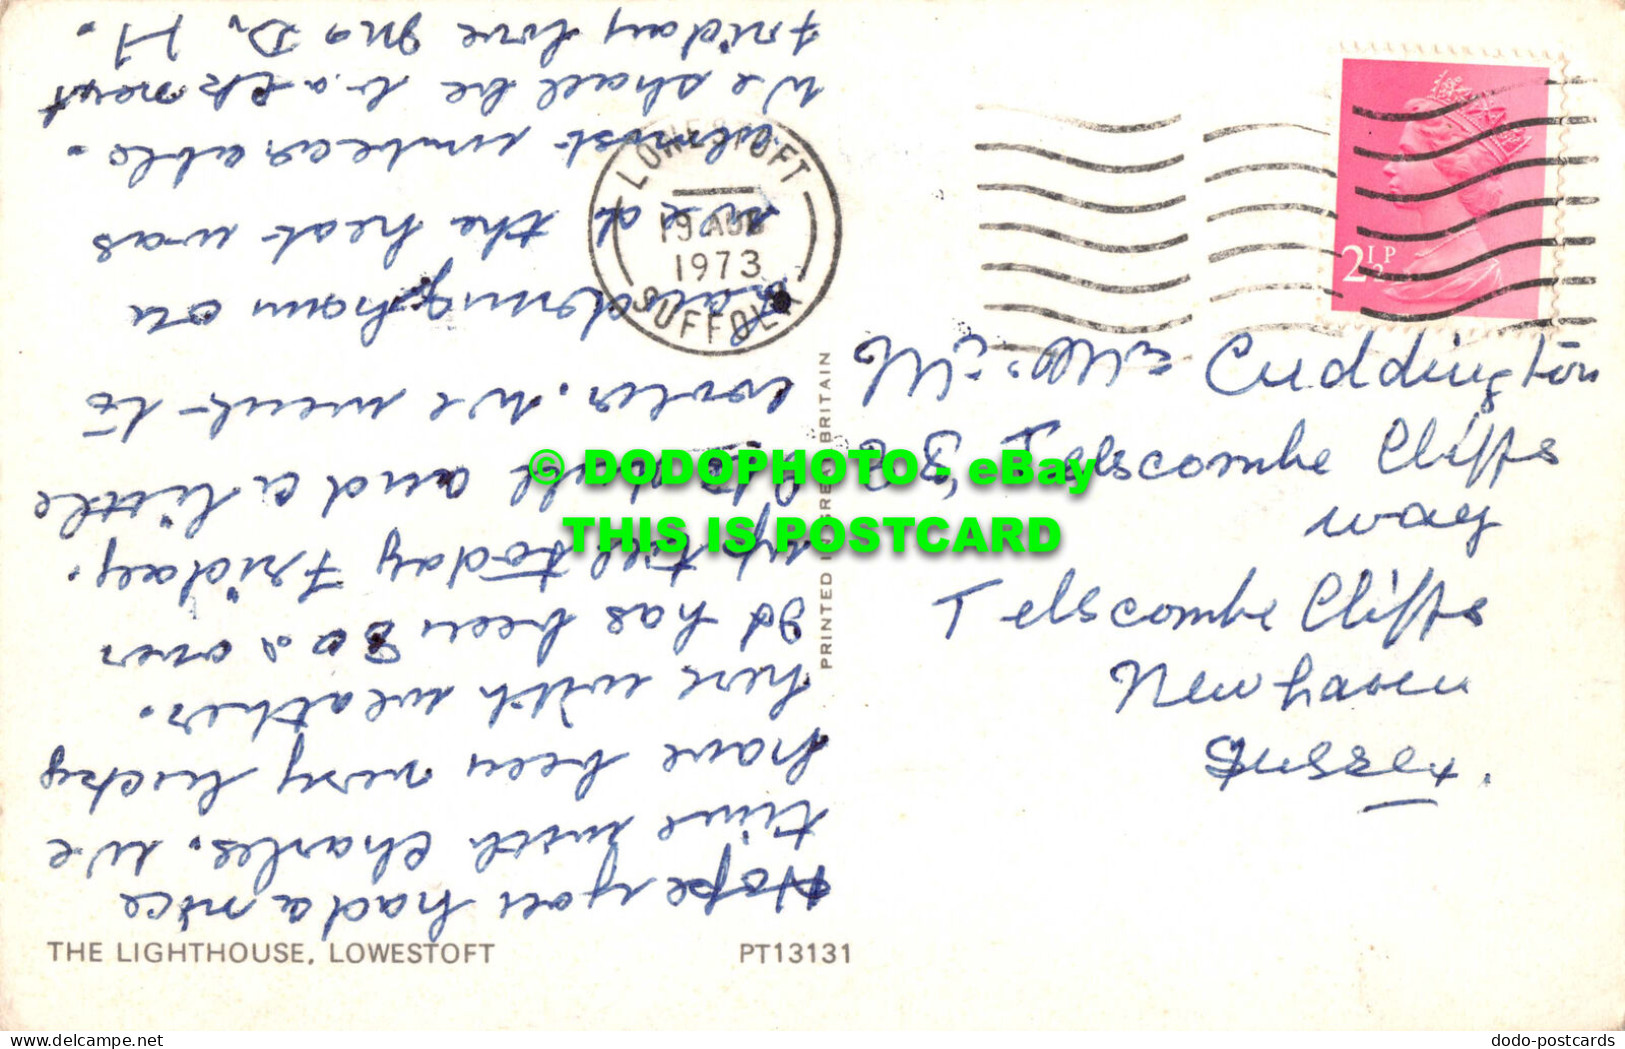 Hope you had a nice
time with Charles. We
have been very lucky
here with weather.
It has been 80 & over
up till today Friday.
and a little
cooler. We went to
Saxlingham on
the heat was
almost unbearable.
We shall be back next
Friday love Mo D. H.
LOWESTOFT
19 AUG
1973
SUFFOLK
2½P
Cuddington
Telscombe Cliffs
way
Telscombe Cliffs
Newhaven
Sussex.
PRINTED IN GREAT BRITAIN
© DODOPHOTO - eBay
THIS IS POSTCARD
THE LIGHTHOUSE, LOWESTOFT
PT13131
dodo-postcards